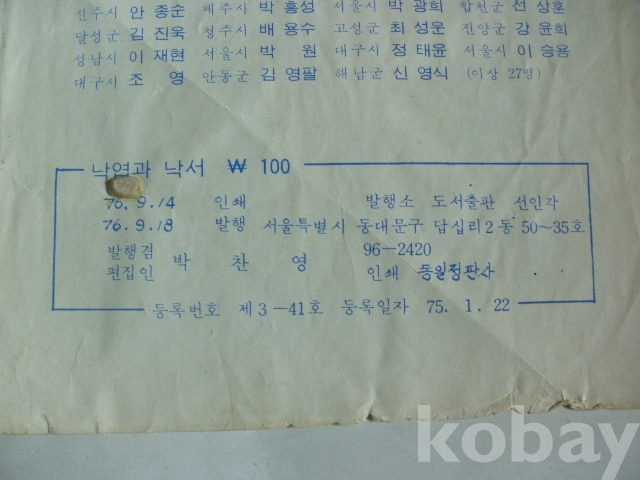 전주시 안 종순 제주시 박 홍성 서울시 박 광희 합천군 선 상훈
달성군 김 진욱 청주시 배 용수 고성군 최 성운 진양군 강 윤희
성남시 이 재현 서울시 박 원 대구시 정 태윤 서울시 이 승용
대구시 조 영 안동군 김 영팔 해남군 신 영식 (이상 27명)
낙엽과 낙서 ₩ 100
76. 9. 14 인쇄 발행소 도서출판 선인각
76. 9. 18 발행 서울특별시 동대문구 답십리2동 50~35호
발행겸 96-2420
편집인 박 찬 영 인쇄 동일정판사
등록번호 제3-41호 등록일자 75. 1. 22
kobay